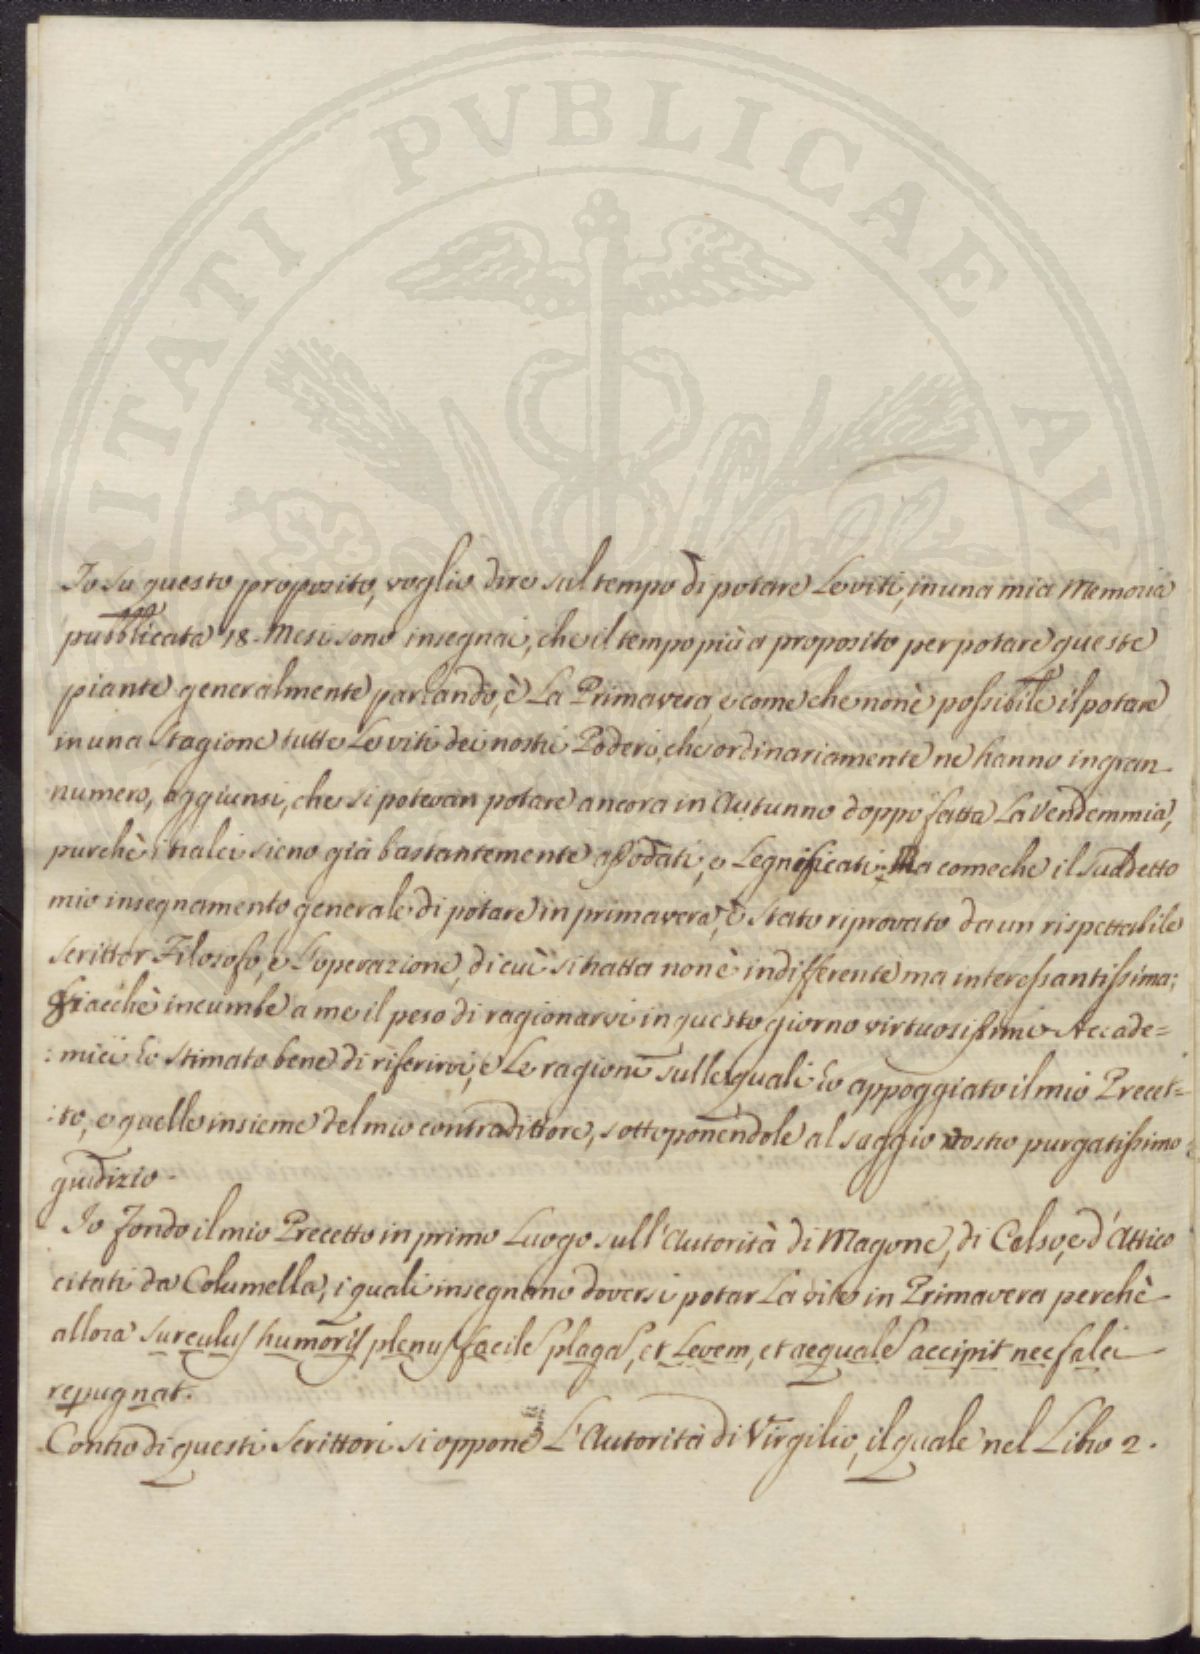 PROSPERITATI PVBLICAE AV
Io su questo proposito, voglio dire sul tempo di potare Le viti, in una mia Memoria
pubblicata 18. Mesi sono insegnai, che il tempo più a proposito per potare queste
piante generalmente parlando, è La Primavera, e come che non è possibile il potare
in una stagione tutte Le viti dei nostri Poderi, che ordinariamente ne hanno in gran
numero, aggiunsi, che si potevan potare ancora in Autunno doppo fatta La Vendemmia,
purchè i tralci sieno già bastantemente assodati, e Legnificati. Ma comeche il suddetto
mio insegnamento generale di potare in primavera, è stato riprovato da un rispettabile
scrittor Filosofo, e L'operazione, di cui si tratta non è indifferente ma interessantissima;
Giacchè incumbe a me il peso di ragionarvi in questo giorno virtuosissimi Accade=
:mici ho stimato bene di riferirvi, e Le ragioni sulle quali ho appoggiato il mio Precet=
:to, e quelle insieme del mio contradittore, sottoponendole al saggio vostro purgatissimo
giudizio.
Io fondo il mio Precetto in primo Luogo sull'Autorità di Magone, di Celso, e d'Attico
citati da Columella, i quali insegnano doversi potar La vite in Primavera perchè
allora surculus humoris plenus facile plagas, et Levem, et aequales accipit nec falci
repugnat.
Contro di questi scrittori si oppone L'Autorità di Virgilio, il quale nel Libro 2.